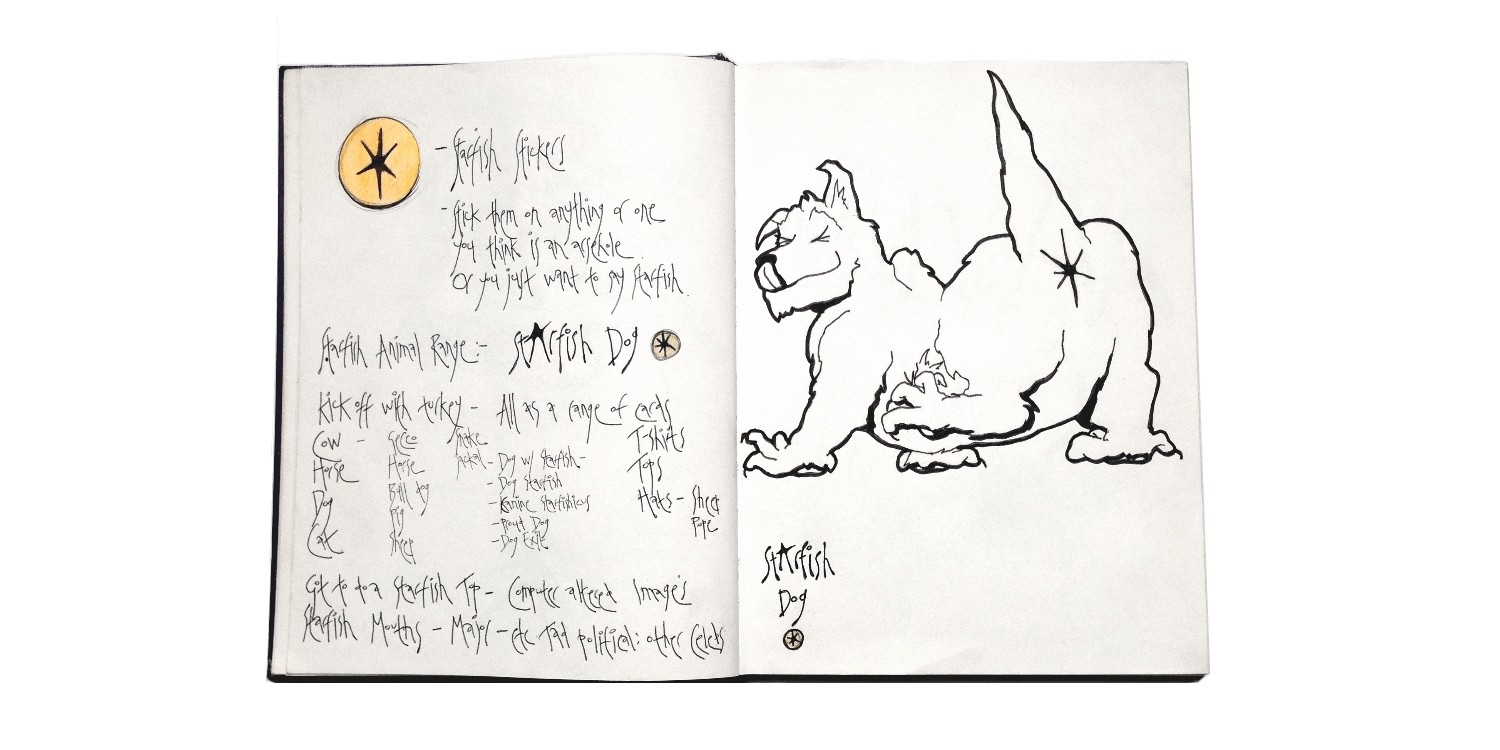 - Starfish Stickers
- Stick them on anything or one
you think is an assehole.
Or you just want to say Starfish.
Starfish Animal Range:- StArfish Dog
Kick off with turkey - All as a range of cards
Cow - Gecco Snake T-Shirts
Horse Horse Jackal - Dog w/ Starfish - Tops
Dog Bull dog - Dog Starfish
Cat Pig - Kanine Starfishicus Hats - Sheep
Sheep - Proud Dog Pope
- Dog Exit
Got to do a Starfish Top - Computer altered Image's
Starfish Mouths - Major - etc. Tad political: other Celebs
StArfish
Dog